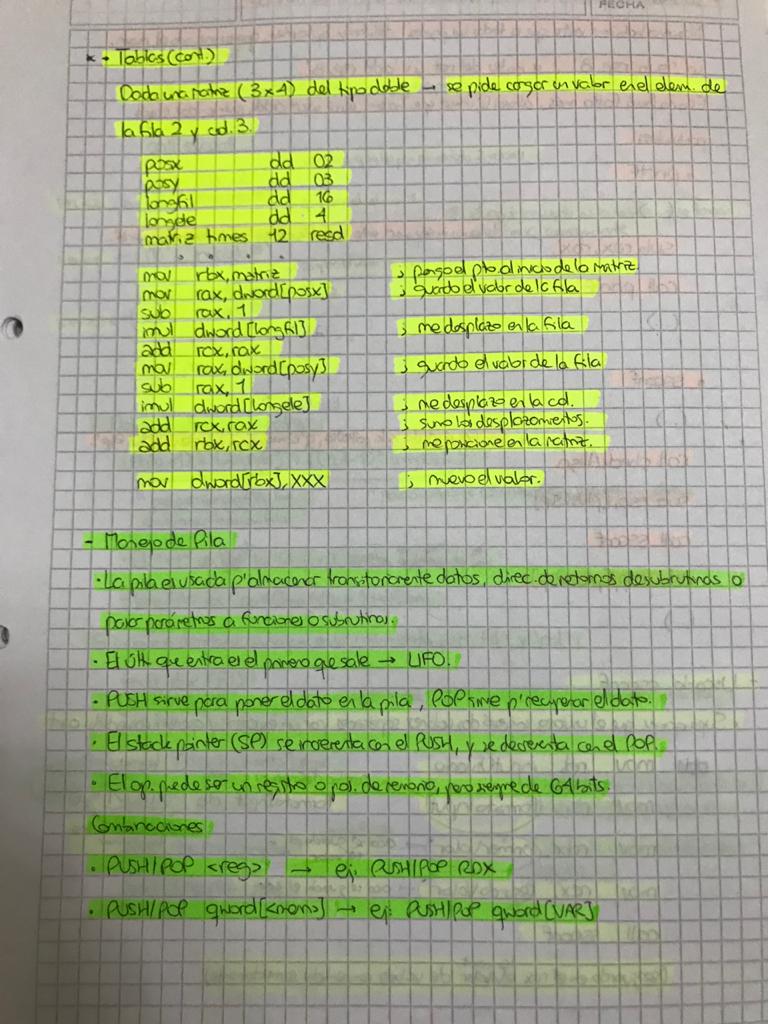 FECHA
* - Tablas (cont.)
Dada una matriz (3x4) del tipo doble → se pide cargar un valor en el elem. de
la fila 2 y col. 3.
posx dd 02
posy dd 03
longfil dd 16
longele dd 4
matriz times 12 resd
. . . .
mov rbx, matriz ; pongo el pto. al inicio de la matriz.
mov rax, dword[posx] ; guardo el valor de la fila
sub rax, 1
imul dword[longfil] ; me desplazo en la fila
add rcx, rax
mov rax, dword[posy] ; guardo el valor de la fila
sub rax, 1
imul dword[longele] ; me desplazo en la col.
add rcx, rax ; sumo los desplazamientos.
add rbx, rcx ; me posicione en la matriz.
mov dword[rbx], XXX ; muevo el valor.
- Manejo de Pila
· La pila es usada p' almacenar transitoriamente datos, direc. de retornos de subrutinas o
pasar parámetros a funciones o subrutinas.
· El últ. que entra es el primero que sale → LIFO.
· PUSH sirve para poner el dato en la pila, POP sirve p' recuperar el dato.
· El stack pointer (SP) se incrementa con el PUSH, y se decrementa con el POP.
· El op. puede ser un registro o pos. de memoria, pero siempre de 64 bits.
Combinaciones
· PUSH/POP <reg> → ej: PUSH/POP RDX
· PUSH/POP qword[<mem>] → ej: PUSH/POP qword[VAR]